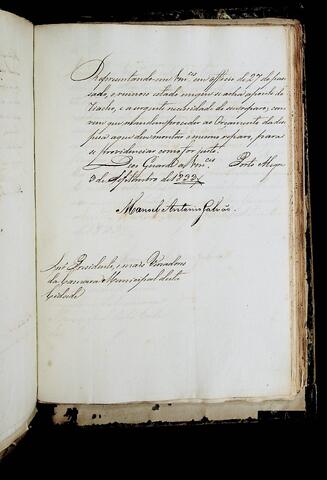 Representando-me Vm.ces em officio de 27 do pas-
sado, o ruinoso estado em que se acha a ponte do
Riacho, e a urgente necessidade de seu reparo; con-
vem que mandem proceder ao Orçamento da des-
peza a que deve montar o mesmo reparo, para
se providenciar como for justo.
Deos Guarde a Vm.ces Porto Alegre
3 de Septembro de 1833
Manoel Antonio Galvão.
Snr. Presidente, e mais Vereadores
da Camara Municipal desta
Cidade